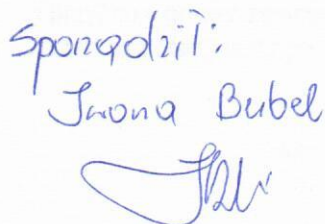 Sporządził:
Iwona Bubel